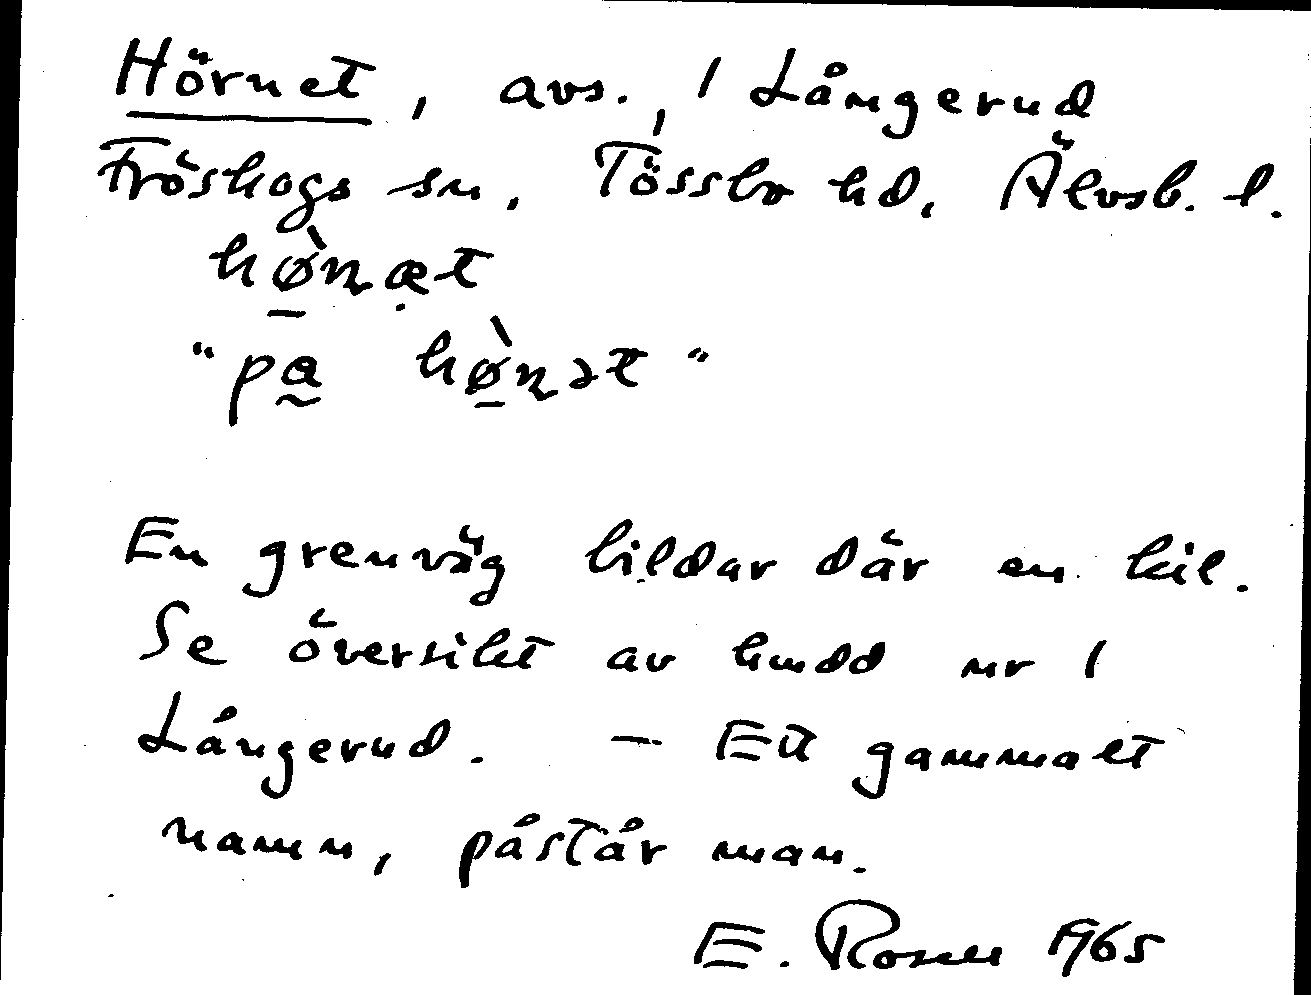 Hörnet, avs., 1 Långerud
Fröskogs sn, Tössbo hd, Älvsb. l.
hø̠̀ɳæ̣t
"pa̰ hø̠̀ɳət"
En grenväg bildar där en kil.
Se översikt av hmdd nr 1
Långerud. – Ett gammalt
namn, påstår man.
E. Rosell 1965